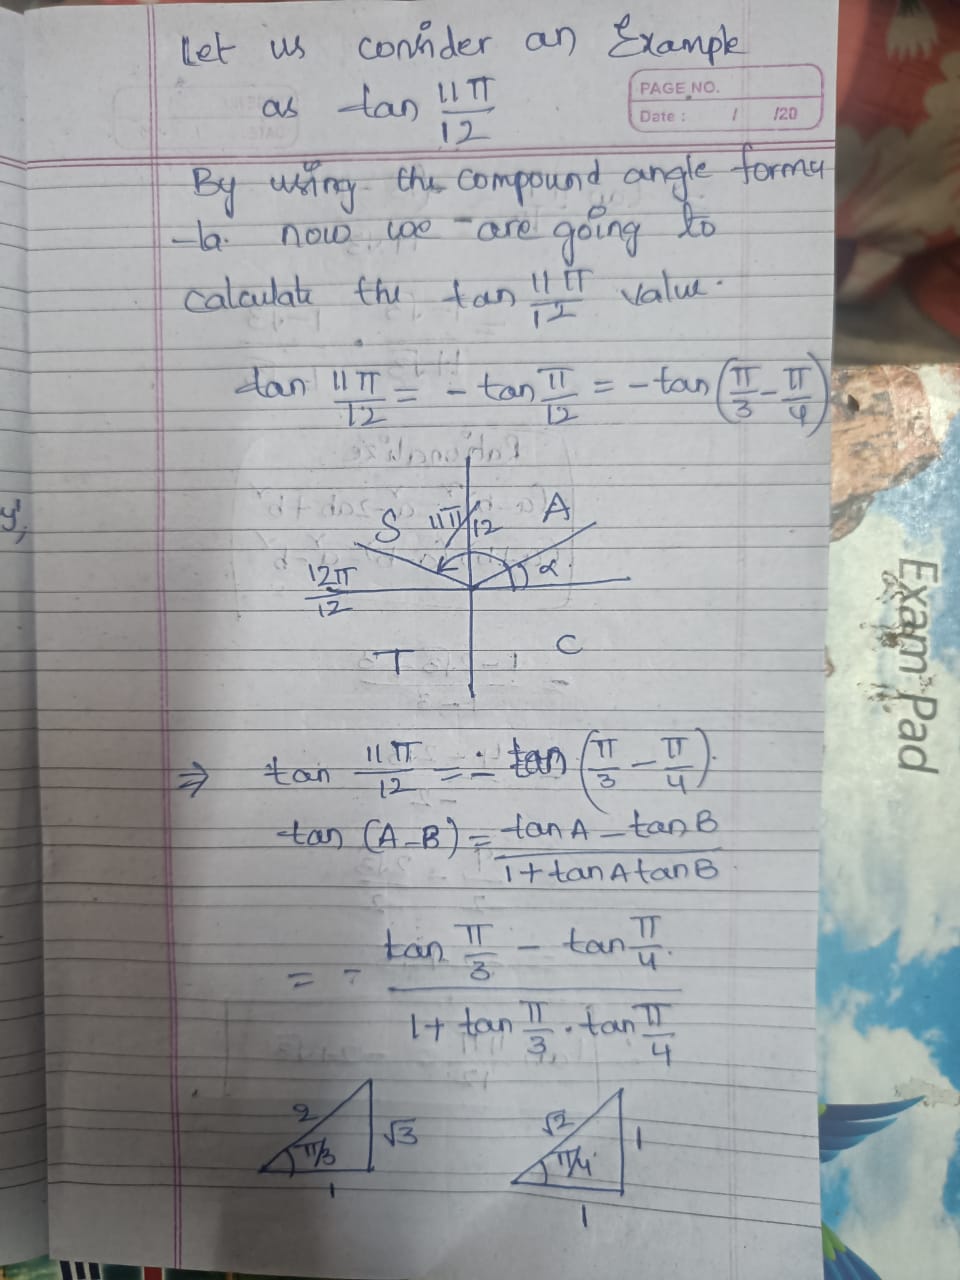 Let us consider an Example
as tan 11π/12
PAGE NO.
Date : / /20
By using the compound angle formu
-la. now we are going to
calculate the tan 11π/12 value.
tan 11π/12 = - tan π/12 = - tan (π/3 - π/4)
S 11π/12 A
12π/12 α
T C
⇒ tan 11π/12 = - tan (π/3 - π/4).
tan (A-B) = tanA - tanB / 1 + tanA tanB
= - tan π/3 - tan π/4 / 1 + tan π/3 . tan π/4
2 √3 π/3 1
√2 1 π/4 1
Exam Pad